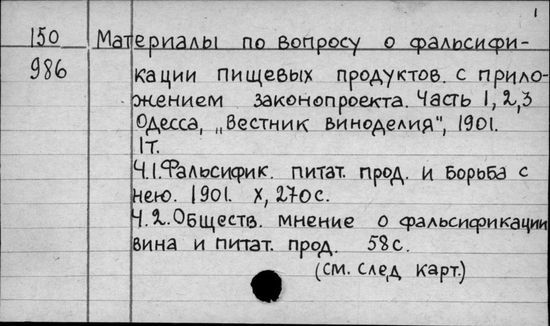 1
150 Материалы по вопросу о фальсифи-
986 кации пищевых продуктов. С прило-
жением законопроекта. Часть 1, 2, 3
Одесса, „Вестник виноделия", 1901.
1т.
Ч.1. Фальсифик. питат. прод. и борьба с
нею. 1901. X, 270с.
Ч.2. Обществ. мнение о фальсификации
вина и питат. прод. 58с.
(см. след карт.)